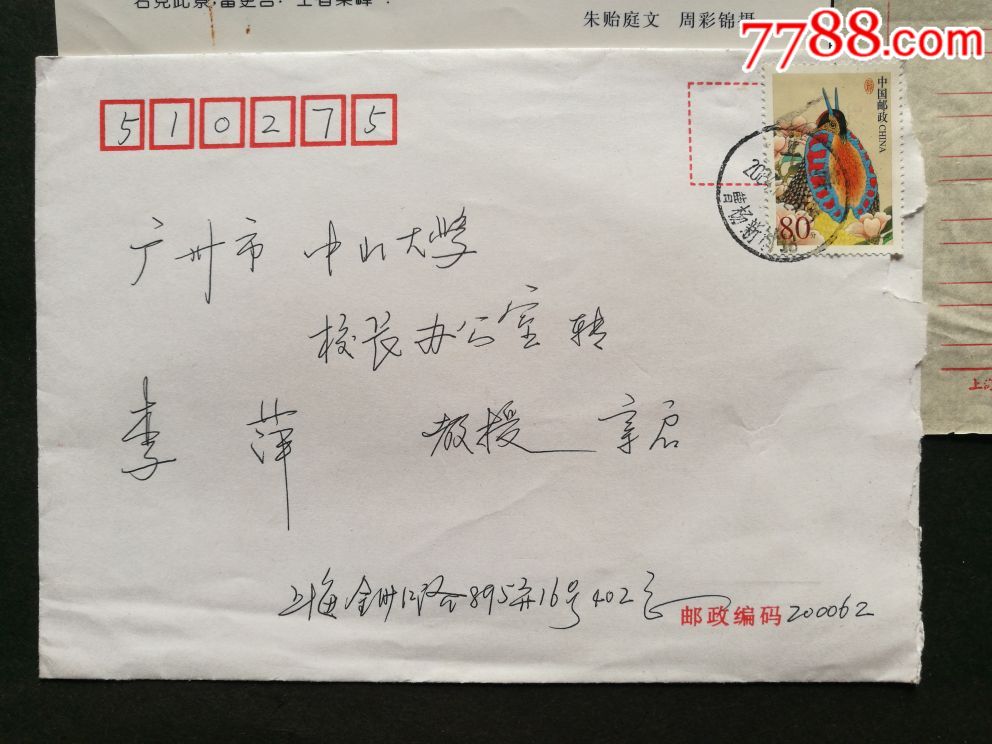 朱贻庭文 周彩锦摄
7788.com
510275
中国邮政 CHINA
80分
广州市 中山大学
校长办公室 转
李 萍 教授 亲启
上海金沙江路895弄16号402室
邮政编码 200062
上海